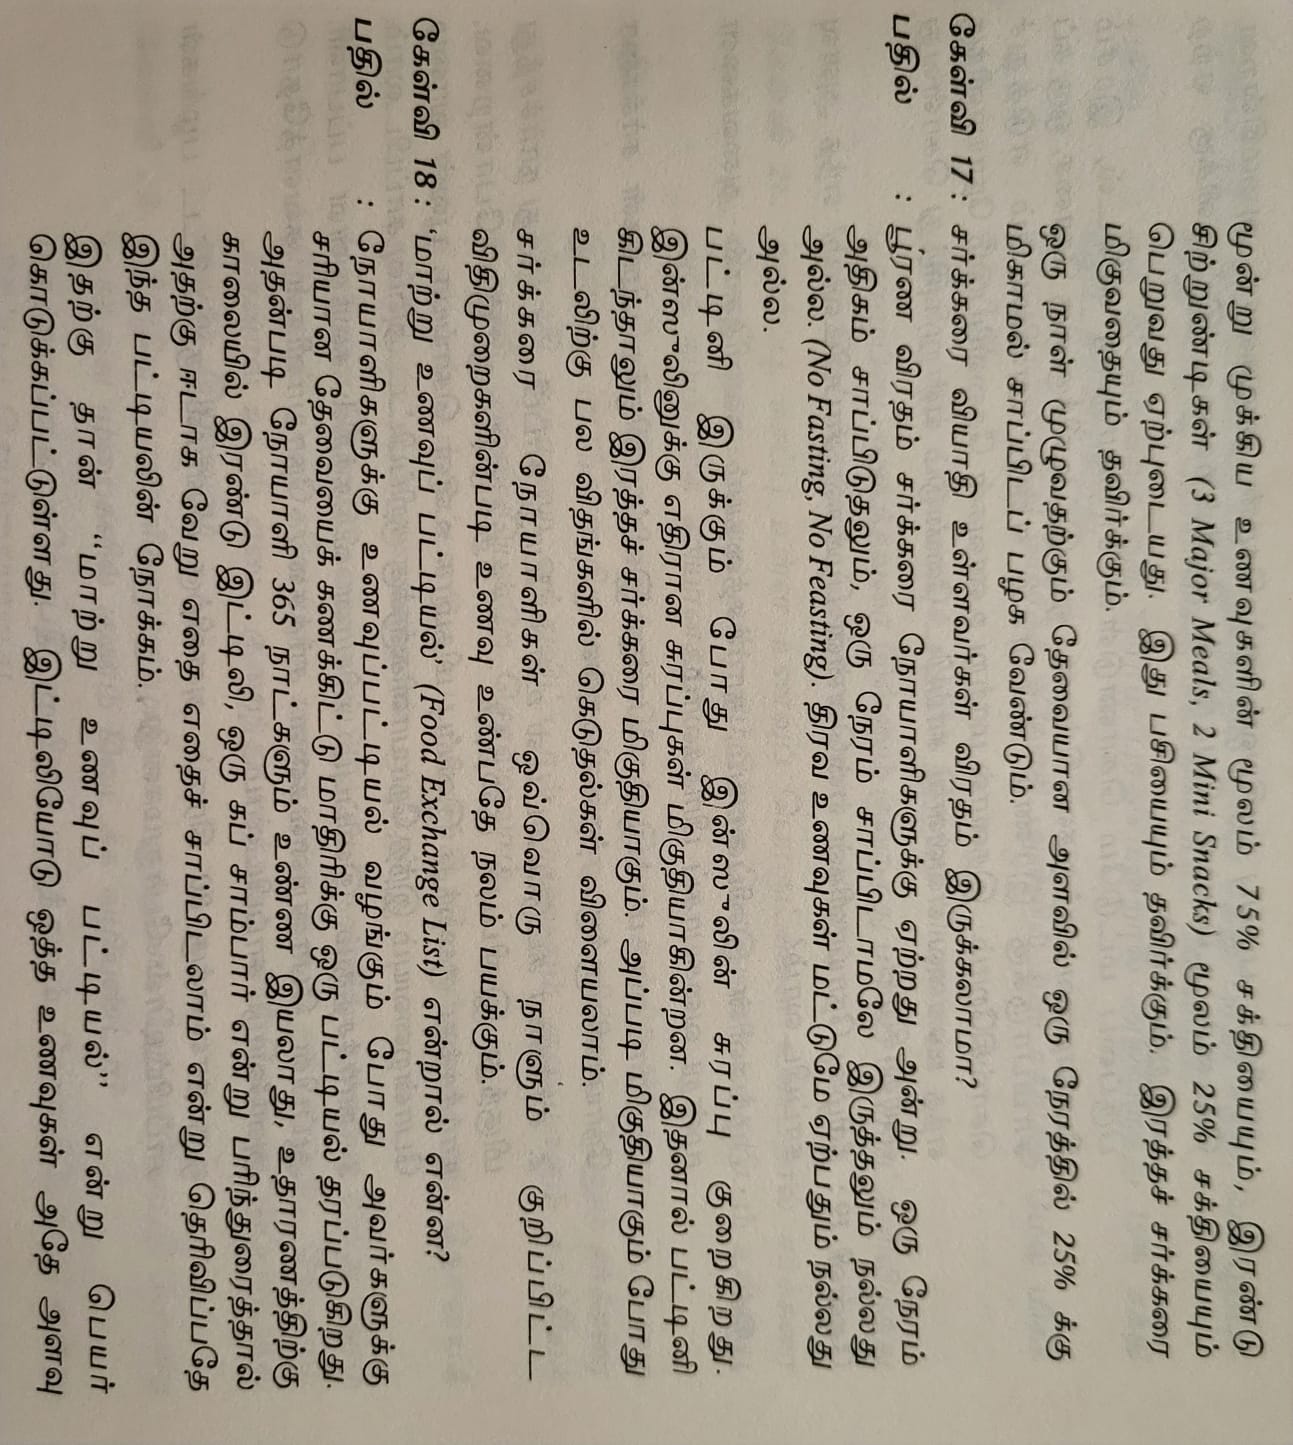 மூன்று முக்கிய உணவுகளின் மூலம் 75% சக்தியையும், இரண்டு
சிற்றுண்டிகள் (3 Major Meals, 2 Mini Snacks) மூலம் 25% சக்தியையும்
பெறுவது ஏற்புடையது. இது பசியையும் தவிர்க்கும். இரத்தச் சர்க்கரை
மிகுவதையும் தவிர்க்கும்.
ஒரு நாள் முழுவதற்கும் தேவையான அளவில் ஒரு நேரத்தில் 25% க்கு
மிகாமல் சாப்பிடப் பழக வேண்டும்.
கேள்வி 17 : சர்க்கரை வியாதி உள்ளவர்கள் விரதம் இருக்கலாமா?
பதில் : பூரண விரதம் சர்க்கரை நோயாளிகளுக்கு ஏற்றது அன்று. ஒரு நேரம்
அதிகம் சாப்பிடுதலும், ஒரு நேரம் சாப்பிடாமலே இருத்தலும் நல்லது
அல்ல. (No Fasting, No Feasting). திரவ உணவுகள் மட்டுமே ஏற்பதும் நல்லது
அல்ல.
பட்டினி இருக்கும் போது இன்சுலின் சுரப்பு குறைகிறது.
இன்சுலினுக்கு எதிரான சுரப்புகள் மிகுதியாகின்றன. இதனால் பட்டினி
கிடந்தாலும் இரத்தச் சர்க்கரை மிகுதியாகும். அப்படி மிகுதியாகும் போது
உடலிற்கு பல விதங்களில் கெடுதல்கள் விளையலாம்.
சர்க்கரை நோயாளிகள் ஒவ்வொரு நாளும் குறிப்பிட்ட
விதிமுறைகளின்படி உணவு உண்பதே நலம் பயக்கும்.
கேள்வி 18 : 'மாற்று உணவுப் பட்டியல்' (Food Exchange List) என்றால் என்ன?
பதில் : நோயாளிகளுக்கு உணவுப்பட்டியல் வழங்கும் போது அவர்களுக்கு
சரியான தேவையைக் கணக்கிட்டு மாதிரிக்கு ஒரு பட்டியல் தரப்படுகிறது.
அதன்படி நோயாளி 365 நாட்களும் உண்ண இயலாது, உதாரணத்திற்கு
காலையில் இரண்டு இட்டிலி, ஒரு கப் சாம்பார் என்று பரிந்துரைத்தால்
அதற்கு ஈடாக வேறு எதை எதைச் சாப்பிடலாம் என்று தெரிவிப்பதே
இந்த பட்டியலின் நோக்கம்.
இதற்கு தான் "மாற்று உணவுப் பட்டியல்" என்று பெயர்
கொடுக்கப்பட்டுள்ளது. இட்டிலியோடு ஒத்த உணவுகள் அதே அளவு